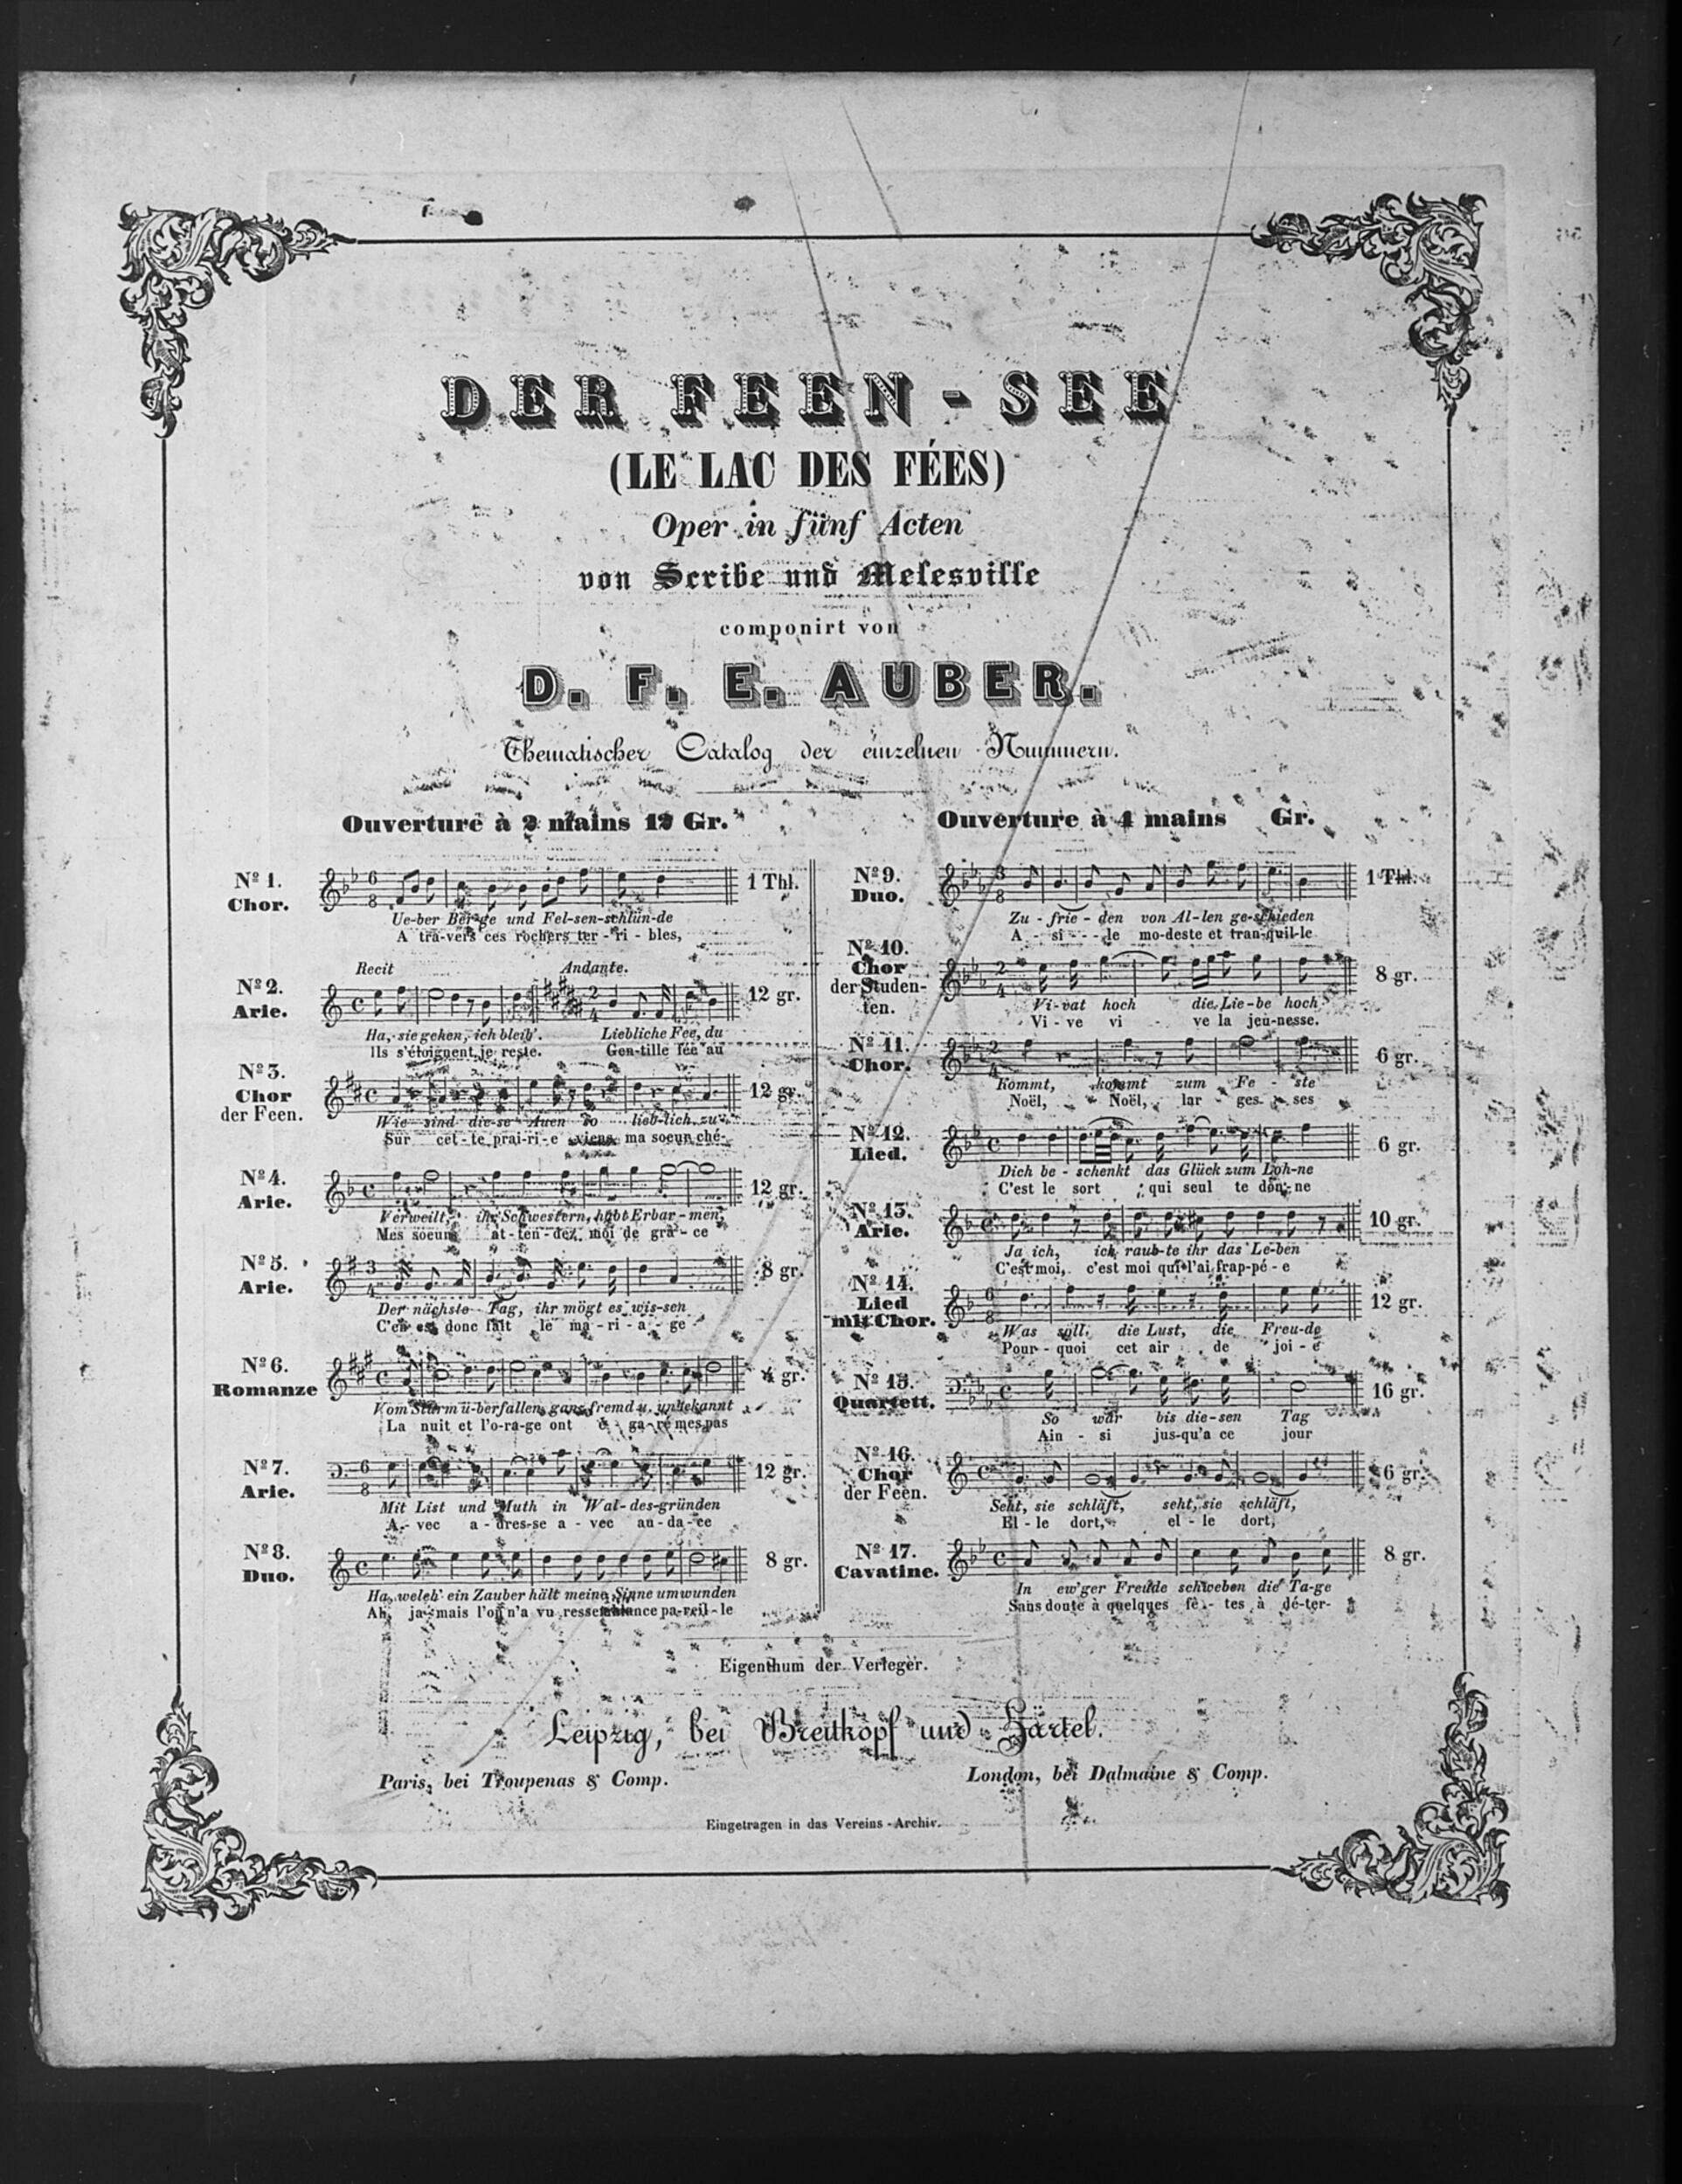 DER FEEN-SEE
(LE LAC DES FÉES)
Oper in fünf Acten
von Scribe und Melesville
componirt von
D. F. E. AUBER.
Thematischer Catalog der einzelnen Nummern.
Ouverture à 2 mains 12 Gr.
Nº 1.
Chor.
1 Thl.
Ue-ber Ber-ge und Fel-sen-schlün-de
A tra-vers ces rochers ter-ri-bles,
Recit Andante.
Nº 2.
Arie.
12 gr.
Ha, sie gehen, ich bleib'. Liebliche Fee, du
Ils s'éloignent, je reste. Gen-tille fée au
Nº 3.
Chor
der Feen.
12 gr.
Wie sind die-se Auen so lieb-lich zu
Sur cet-te prai-ri-e viens ma soeur ché-
Nº 4.
Arie.
12 gr.
Verweilt, ihr Schwestern, habt Erbar-men,
Mes soeurs at-ten-dez moi de grâ-ce
Nº 5.
Arie.
8 gr.
Der nächste Tag, ihr mögt es wis-sen
C'en est donc fait le ma-ri-a-ge
Nº 6.
Romanze
4 gr.
Vom Sturm ü-berfallen, ganz fremd u. unbekannt
La nuit et l'o-ra-ge ont é-ga-ré mes pas
Nº 7.
Arie.
12 gr.
Mit List und Muth in Wal-des-gründen
A-vec a-dres-se a-vec au-da-ce
Nº 8.
Duo.
8 gr.
Ha, welch' ein Zauber hält meine Sinne umwunden
Ah, ja-mais l'on n'a vu ressemblance pa-reil-le
Ouverture à 4 mains Gr.
Nº 9.
Duo.
1 Thl.
Zu-frie-den von Al-len ge-schieden
A-si-le mo-deste et tran-quil-le
Nº 10.
Chor
der Studen-
ten.
8 gr.
Vi-vat hoch die Lie-be hoch
Vi-ve vi-ve la jeu-nesse.
Nº 11.
Chor.
6 gr.
Kommt, kommt zum Fe-ste
Noël, Noël, lar-ges-ses
Nº 12.
Lied.
6 gr.
Dich be-schenkt das Glück zum Loh-ne
C'est le sort qui seul te don-ne
Nº 13.
Arie.
10 gr.
Ja ich, ich raub-te ihr das Le-ben
C'est moi, c'est moi qui l'ai frap-pé-e
Nº 14.
Lied
mit Chor.
12 gr.
Was soll die Lust, die Freu-de
Pour-quoi cet air de joi-e
Nº 15.
Quartett.
16 gr.
So war bis die-sen Tag
Ain-si jus-qu'a ce jour
Nº 16.
Chor
der Feen.
6 gr.
Seht, sie schläft, seht, sie schläft,
El-le dort, el-le dort,
Nº 17.
Cavatine.
8 gr.
In ew'ger Freude schweben die Ta-ge
Sans doute à quelques fê-tes à dé-ter-
Eigenthum der Verleger.
Leipzig, bei Breitkopf und Härtel.
Paris, bei Troupenas & Comp. London, bei Dalmaine & Comp.
Eingetragen in das Vereins-Archiv.